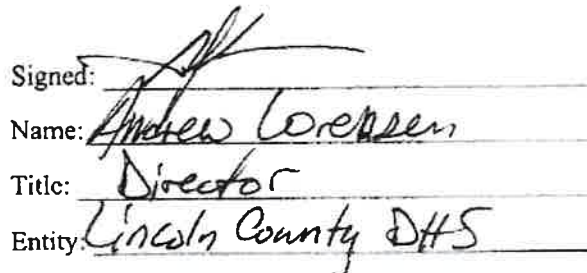 Signed:
Name: Andrew Lorensen
Title: Director
Entity: Lincoln County DHS